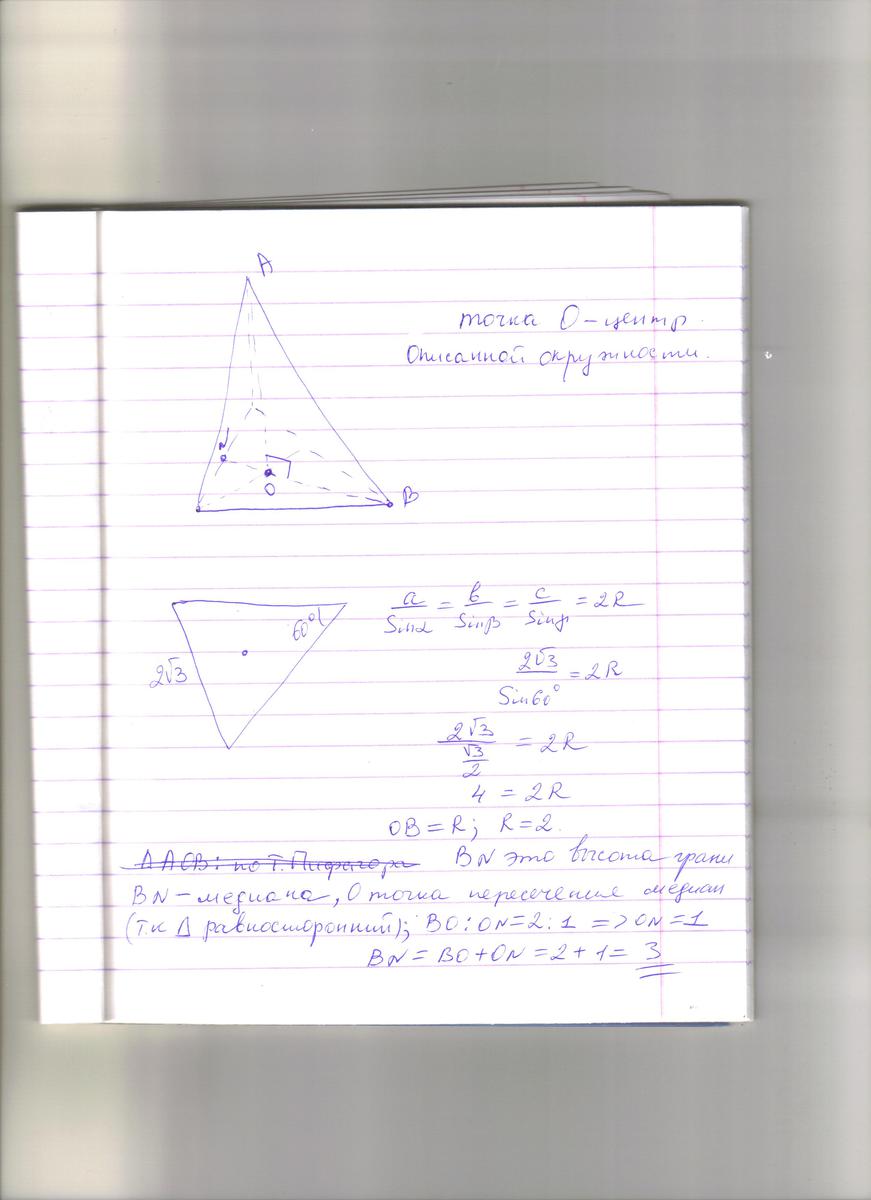 A
точка О – центр
Описанной окружности.
N
O
B
a/Sinα = b/Sinβ = c/Sinγ = 2R
60°
2√3
2√3/Sin60° = 2R
2√3/(√3/2) = 2R
4 = 2R
OB = R; R = 2.
Δ AOB: по т. Пифагора BN это высота грани
BN – медиана, О точка пересечение медиан
(т.к Δ равносторонний); BO : ON = 2 : 1 => ON = 1
BN = BO + ON = 2 + 1 = 3